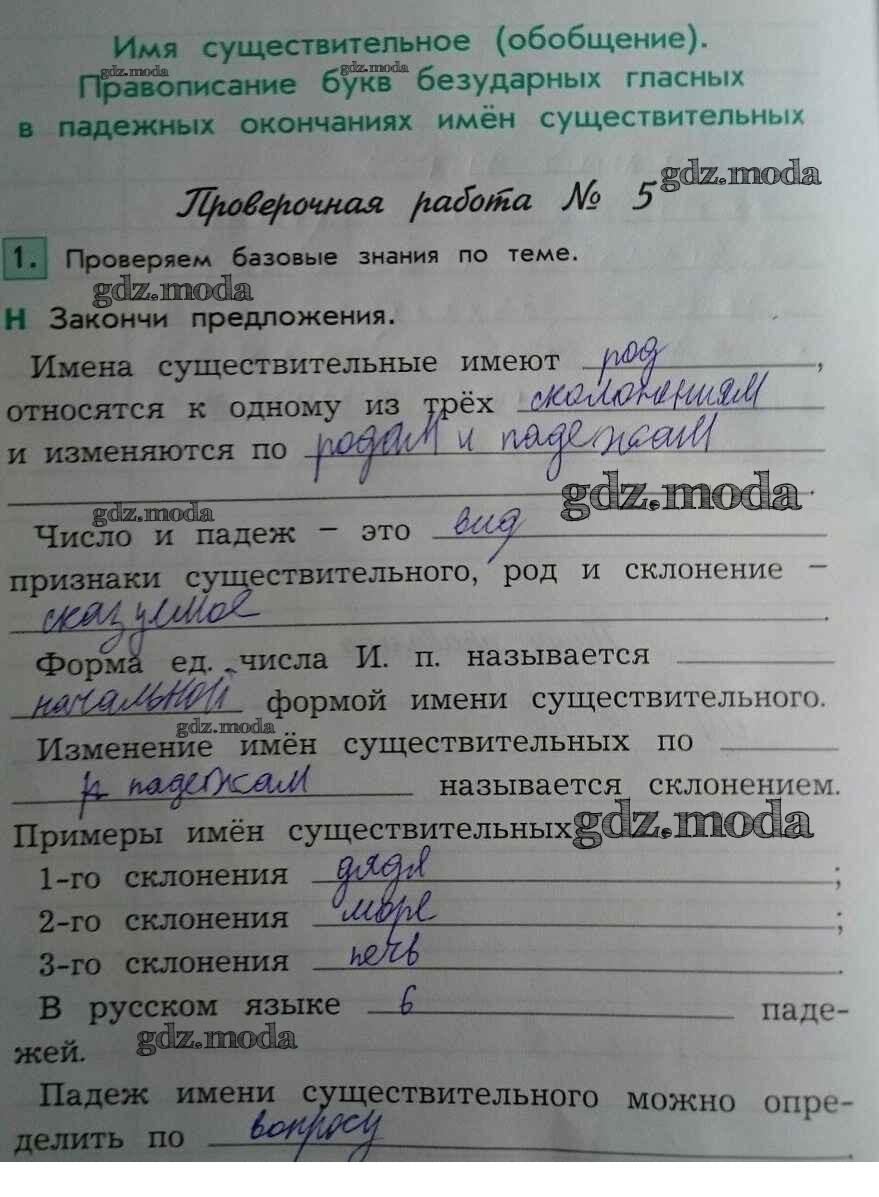 Имя существительное (обобщение).
gdz.moda gdz.moda
Правописание букв безударных гласных
в падежных окончаниях имён существительных
Проверочная работа № 5 gdz.moda
1. Проверяем базовые знания по теме.
gdz.moda
Н Закончи предложения.
Имена существительные имеют род,
относятся к одному из трёх сколонениям
и изменяются по родам и падежам
gdz.moda.
gdz.moda
Число и падеж – это вид
признаки существительного, род и склонение –
сказуемое.
Форма ед. числа И. п. называется
начальной формой имени существительного.
gdz.moda
Изменение имён существительных по
падежам называется склонением.
Примеры имён существительных gdz.moda
1-го склонения дядя;
2-го склонения море;
3-го склонения печь.
В русском языке 6 паде-
жей. gdz.moda
Падеж имени существительного можно опре-
делить по вопросу.